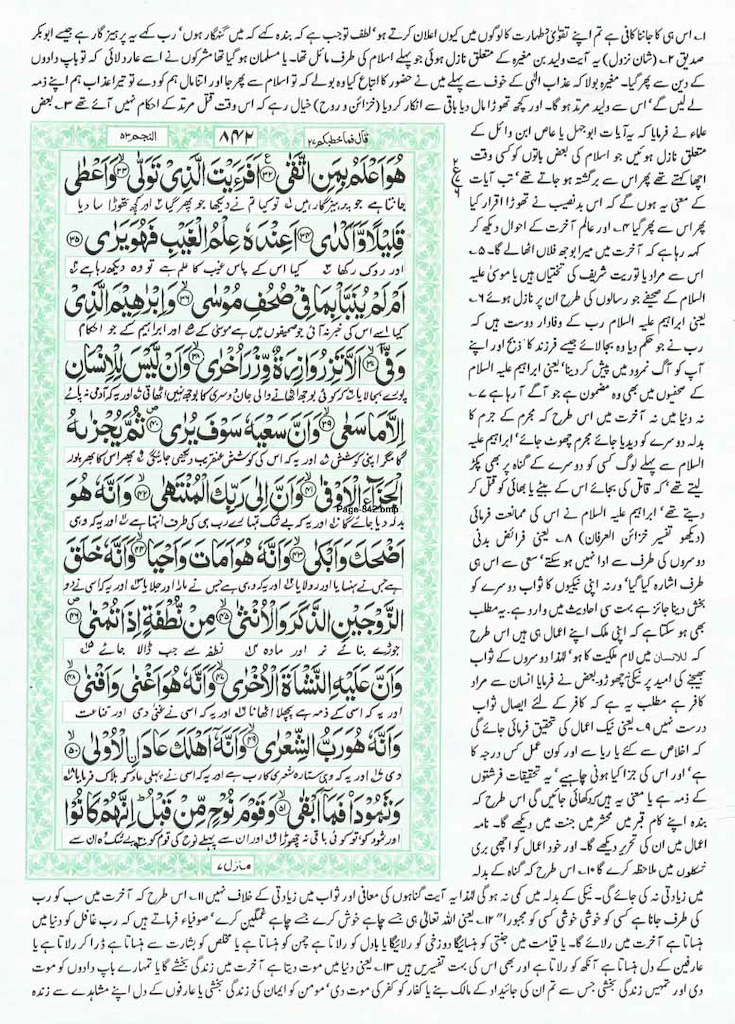 ۱۔ اس ہی کا جاننا کافی ہے تم اپنے تقویٰ و طہارت کا لوگوں میں کیوں اعلان کرتے ہو' لطف تو جب ہے کہ بندہ کہے کہ میں گنہگار ہوں' رب کہے یہ پرہیزگار ہے جیسے ابوبکر
صدیق ۲۔ (شان نزول) یہ آیت ولید بن مغیرہ کے متعلق نازل ہوئی جو پہلے اسلام کی طرف مائل تھا۔ یا مسلمان ہو گیا تھا مشرکوں نے اسے عار دلائی کہ تو باپ دادوں
کے دین سے پھر گیا۔ مغیرہ بولا کہ عذاب الٰہی کے خوف سے پہلے میں نے حضور کا اتباع کیا وہ بولے کہ تو اسلام سے پھر جا اور اتنا مال ہم کو دے تو تیرا عذاب ہم اپنے ذمہ
لے لیں گے' اس سے ولید مرتد ہو گیا۔ اور کچھ تھوڑا مال دیا باقی سے انکار کر دیا (خزائن و روح) خیال رہے کہ اس وقت قتل مرتد کے احکام نہیں آئے تھے ۳۔ بعض
قال فما خطبکم ۲۷
۸۴۲
النجم ۵۳
هُوَ اَعْلَمُ بِمَنِ اتَّقٰى ۳۲ اَفَرَءَيْتَ الَّذِيْ تَوَلّٰى ۳۳ وَاَعْطٰى
جانتا ہے جو پرہیزگار ہیں تو کیا تم نے دیکھا جو پھر گیا اور کچھ تھوڑا سا دیا
قَلِيْلًا وَّاَكْدٰى ۳۴ اَعِنْدَهٗ عِلْمُ الْغَيْبِ فَهُوَ يَرٰى ۳۵
اور روک رکھا کیا اس کے پاس غیب کا علم ہے تو وہ دیکھ رہا ہے
اَمْ لَمْ يُنَبَّاْ بِمَا فِيْ صُحُفِ مُوْسٰى ۳۶ وَاِبْرٰهِيْمَ الَّذِيْ
کیا اسے اس کی خبر نہ آئی جو صحیفوں میں ہے موسیٰ کے اور ابراہیم کے جو احکام
وَفّٰى ۳۷ اَلَّا تَزِرُ وَازِرَةٌ وِّزْرَ اُخْرٰى ۳۸ وَاَنْ لَّيْسَ لِلْاِنْسَانِ
پورے بجا لایا کہ کوئی بوجھ اٹھانے والی جان دوسری کا بوجھ نہیں اٹھاتی اور یہ کہ آدمی نہ پائے
اِلَّا مَا سَعٰى ۳۹ وَاَنَّ سَعْيَهٗ سَوْفَ يُرٰى ۴۰ ثُمَّ يُجْزٰىهُ
گا مگر اپنی کوشش اور یہ کہ اس کی کوشش عنقریب دیکھی جائیگی پھر اس کا بھرپور
الْجَزَآءَ الْاَوْفٰى ۴۱ وَاَنَّ اِلٰى رَبِّكَ الْمُنْتَهٰى ۴۲ وَاَنَّهٗ هُوَ
بدلہ دیا جائے گا اور یہ کہ بے شک تمہارے رب ہی کی طرف انتہا ہے اور یہ کہ وہی
Page-842.bmp
اَضْحَكَ وَاَبْكٰى ۴۳ وَاَنَّهٗ هُوَ اَمَاتَ وَاَحْيَا ۴۴ وَاَنَّهٗ خَلَقَ
ہے جس نے ہنسایا اور رولایا اور یہ کہ وہی ہے جس نے مارا اور جلایا اور یہ کہ اسی نے دو
الزَّوْجَيْنِ الذَّكَرَ وَالْاُنْثٰى ۴۵ مِنْ نُّطْفَةٍ اِذَا تُمْنٰى ۴۶
جوڑے بنائے نر اور مادہ نطفہ سے جب ڈالا جائے
وَاَنَّ عَلَيْهِ النَّشْاَةَ الْاُخْرٰى ۴۷ وَاَنَّهٗ هُوَ اَغْنٰى وَاَقْنٰى ۴۸
اور یہ کہ اسی کے ذمہ ہے پچھلا اٹھانا اور یہ کہ اسی نے غنیٰ دی اور قناعت
وَاَنَّهٗ هُوَ رَبُّ الشِّعْرٰى ۴۹ وَاَنَّهٗ اَهْلَكَ عَادَا اِۨلْاُوْلٰى ۵۰
دی اور یہ کہ وہی ستارہ شعریٰ کا رب ہے اور یہ کہ اسی نے پہلی عاد کو ہلاک فرمایا
وَثَمُوْدَا۟ فَمَآ اَبْقٰى ۵۱ وَقَوْمَ نُوْحٍ مِّنْ قَبْلُ اِنَّهُمْ كَانُوْا
اور ثمود کو تو کوئی باقی نہ چھوڑا اور ان سے پہلے نوح کی قوم کو بے شک وہ ان سے
منزل ۷
علماء نے فرمایا کہ یہ آیات ابوجہل یا عاص ابن وائل کے
متعلق نازل ہوئیں جو اسلام کی بعض باتوں کو کسی وقت
اچھا کہتے پھر اس سے برگشتہ ہو جاتے تھے' تب آیات
کے معنی یہ ہوں گے کہ اس بدنصیب نے تھوڑا اقرار کیا
پھر اس سے پھر گیا ۴۔ اور عالم آخرت کے احوال دیکھ کر
کہہ رہا ہے کہ آخرت میں میرا بوجھ فلاں اٹھا لے گا۔ ۵۔
اس سے مراد یا توریت شریف کی تختیاں ہیں یا موسیٰ علیہ
السلام کے صحیفے جو رسالوں کی طرح ان پر نازل ہوئے ۶۔
یعنی ابراہیم علیہ السلام رب کے وفادار دوست ہیں کہ
رب نے جو حکم دیا وہ بجا لائے جیسے فرزند کا ذبح اور اپنے
آپ کو آگ نمرود میں پیش کر دینا' یعنی ابراہیم علیہ السلام
کے صحفوں میں بھی وہ مضمون ہے جو آگے آ رہا ہے ۷۔
نہ دنیا میں نہ آخرت میں اس طرح کہ مجرم کے جرم کا
بدلہ دوسرے کو دیدیا جائے مجرم چھوٹ جائے' ابراہیم علیہ
السلام سے پہلے لوگ کسی کو دوسرے کے گناہ پر بھی پکڑ
لیتے تھے' کہ قاتل کی بجائے اس کے بیٹے یا بھائی کو قتل کر
دیتے تھے' ابراہیم علیہ السلام نے اس کی ممانعت فرمائی
(دیکھو تفسیر خزائن العرفان) ۸۔ یعنی فرائض بدنی
دوسروں کی طرف سے ادا نہیں ہو سکتے' سعی سے اس ہی
طرف اشارہ کیا گیا' ورنہ اپنی نیکیوں کا ثواب دوسرے کو
بخش دینا جائز ہے بہت سی احادیث میں وارد ہے۔ یہ مطلب
بھی ہو سکتا ہے کہ اپنی ملک اپنے اعمال ہی ہیں اس طرح
کہ للانسان میں لام ملکیت کا ہو' لہٰذا دوسروں کے ثواب
بھیجنے کی امید پر نیکی نہ چھوڑو۔ بعض نے فرمایا انسان سے مراد
کافر ہے مطلب یہ ہے کہ کافر کے لئے ایصال ثواب
درست نہیں ۹۔ یعنی نیک اعمال کی تحقیق فرمائی جائے گی
کہ اخلاص سے کئے یا ریا سے اور کون عمل کس درجہ کا
ہے' اور اس کی جزا کیا ہونی چاہیے' یہ تحقیقات فرشتوں
کے ذمہ ہے یا معنی یہ ہیں کہ دکھائی جائیں گی اس طرح کہ
بندہ اپنے کام قبر میں محشر میں جنت میں دیکھے گا۔ نامہ
اعمال میں ان کی تحریر دیکھے گا۔ اور خود اعمال کو اچھی بری
شکلوں میں ملاحظہ کرے گا ۱۰۔ اس طرح کہ گناہ کے بدلہ
میں زیادتی نہ کی جائے گی۔ نیکی کے بدلہ میں کمی نہ ہو گی لہٰذا یہ آیت گناہوں کی معافی اور ثواب میں زیادتی کے خلاف نہیں ۱۱۔ اس طرح کہ آخرت میں سب کو رب
کی طرف جانا ہے کسی کو خوشی خوشی کسی کو مجبوراً" ۱۲۔ یعنی اللہ تعالیٰ ہی جسے چاہے خوش کرے جسے چاہے غمگین کرے' صوفیاء فرماتے ہیں کہ رب غافل کو دنیا میں
ہنساتا ہے آخرت میں رلائے گا۔ یا قیامت میں جنتی کو ہنسائیگا دوزخی کو رلائیگا یا بادل کو رلاتا ہے چمن کو ہنساتا ہے یا مخلص کو بشارت سے ہنساتا ہے ڈرا کر رلاتا ہے یا
عارفین کے دل ہنساتا ہے آنکھ کو رلاتا ہے اور بھی اس کی بہت تفسیریں ہیں ۱۳۔ یعنی دنیا میں موت دیتا ہے آخرت میں زندگی بخشے گا یا تمہارے باپ دادوں کو موت
دی اور تمہیں زندگی بخشی جس سے تم ان کی جائیداد کے مالک بنے یا کفار کو کفر کی موت دی' مومن کو ایمان کی زندگی بخشی یا عارفوں کے دل اپنے مشاہدے سے زندہ